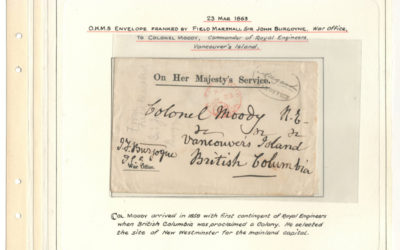 23 Mar 1863
O.H.M.S Envelope franked by Field Marshall Sir John Burgoyne, War Office,
to Colonel Moody, Commander of Royal Engineers,
Vancouver's Island.
On Her Majesty's Service.
Colonel Moody R.E.
Vancouver's Island
British Columbia
J.F. Burgoyne
War Office
Col Moody arrived in 1858 with first contingent of Royal Engineers
when British Columbia was proclaimed a Colony. He selected
the site of New Westminster for the mainland capital.